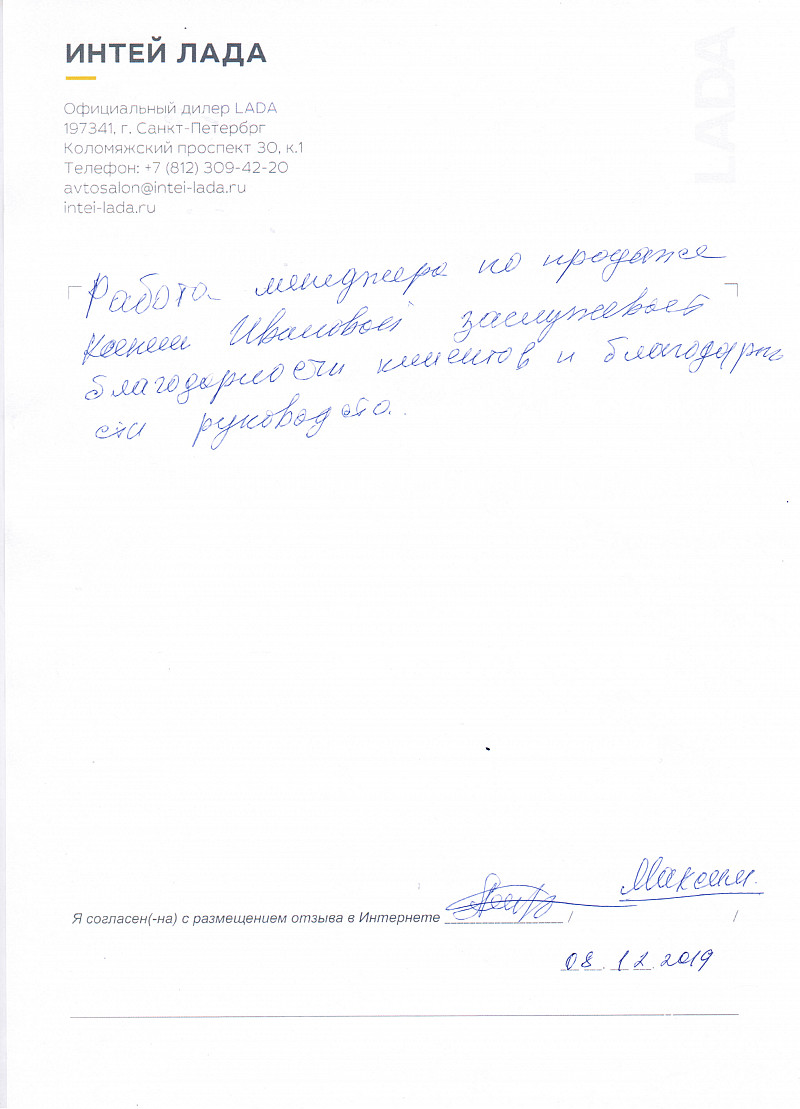 ИНТЕЙ ЛАДА
LADA
Официальный дилер LADA
197341, г. Санкт-Петербрг
Коломяжский проспект 30, к.1
Телефон: +7 (812) 309-42-20
avtosalon@intei-lada.ru
intei-lada.ru
Работа менеджера по продаже
Ксении Ивановой заслуживает
благодарности клиентов и благодарно
сти руководсто.
Максим.
Я согласен(-на) с размещением отзыва в Интернете / /
08.12.2019